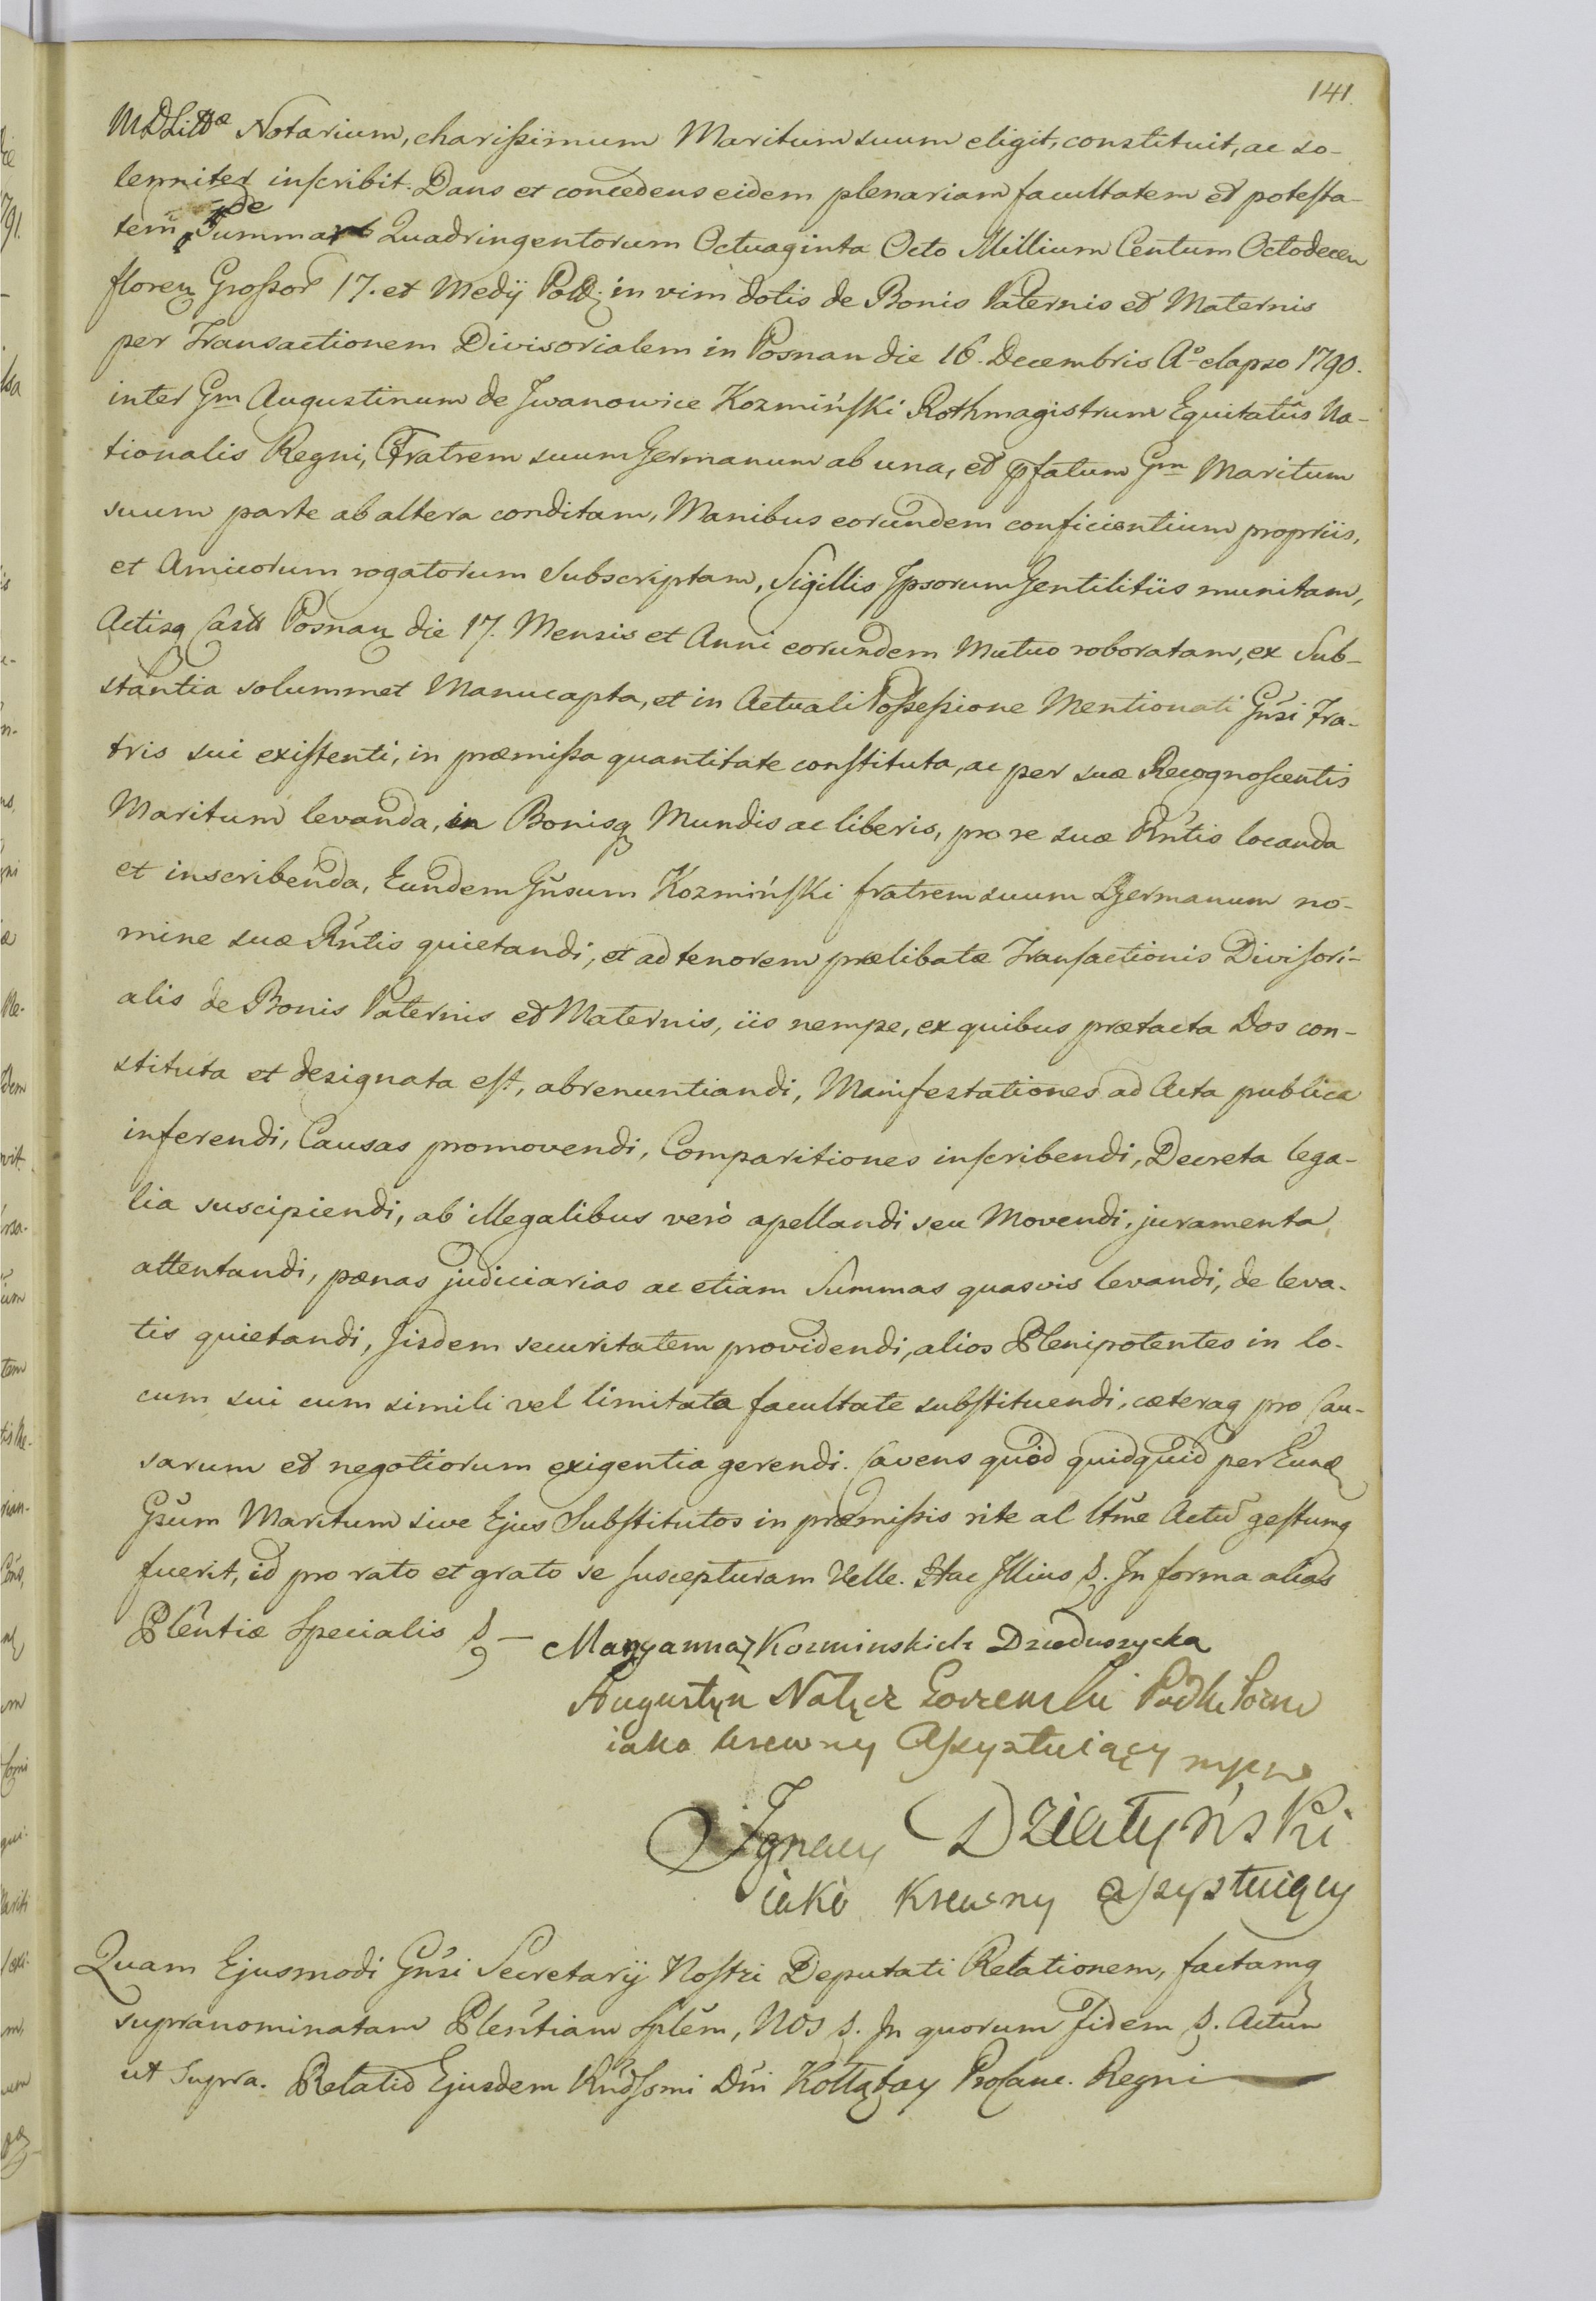 141.
MDLittæ Notarium, charißimum Maritum suum eligit, constituit, ac so-
lemniter inscribit. Dans et concedens eidem plenariam facultatem et potesta-
tem de Summa Quadringentorum Octuaginta Octo Millium Centum Octodecem
floren Großor 17. et Medij Pold. in vim dotis de Bonis Paternis et Maternis
per Transactionem Divisorialem in Posnan die 16. Decembris Aº elapso 1790.
inter Gm Augustinum de Iwanowice Kozmiński Rothmagistrum Equitatûs Na-
tionalis Regni, Fratrem suum Germanum ab una, et pfatum Gm Maritum
suum parte ab altera conditam, Manibus eorundem conficientium propriis,
et Amicorum rogatorum subscriptam, Sigillis Ipsorum Gentilitiis munitam,
Actisq Castr Posnan die 17. Mensis et Anni eorundem Mutuo roboratam, ex Sub-
stantia solummet Manucapta, et in Actuali Poßeßione Mentionati Gnsi Fra-
tris sui existenti, in præmißa quantitate constituta, ac per suæ Recognoscentis
Maritum levanda, in Bonisq Mundis ac liberis, pro re suæ Rntis locanda
et inscribenda, Eundem Gnsum Kozmiński fratrem suum Germanum no-
mine suæ Rntis quietandi, et ad tenorem prælibatæ Transactionis Divisori-
alis de Bonis Paternis et Maternis, iis nempe, ex quibus prætacta Dos con-
stituta et designata est, abrenuntiandi, Manifestationes ad Acta publica
inferendi, Causas promovendi, Comparitiones inscribendi, Decreta lega-
lia suscipiendi, ab illegalibus verò apellandi seu Movendi, juramenta
attentandi, pænas judiciarias ac etiam Summas quasvis levandi, de leva-
tis quietandi, Iisdem securitatem providendi, alios Plenipotentes in lo-
cum sui cum simili vel limitata facultate substituendi, cæteraq pro Cau-
sarum et negotiorum exigentia gerendi. Cavens quòd quidquid per Eund
Gsum Maritum sive Ejus Substitutos in præmißis rite al ltme Actu gestumq
fuerit, id pro rato et grato se suscepturam Velle. Hac Illius &. In forma alias
Plentiæ Specialis & — Maryanna z Kozminskich Dzieduszycka
Augustyn Nałęcz Gorzeński Podk Pozn
iako krewny Aszystuiący mpw
Ignacy Działyński
iako krewny aszystuiący
Quam Ejusmodi Gnsi Secretarij Nostri Deputati Relationem, factamq
supranominatam Plentiam Splem, Nos &. In quorum Fidem &. Actum
ut Supra. Relatio Ejusdem Rndssmi Dni Kołłątay Procanc. Regni